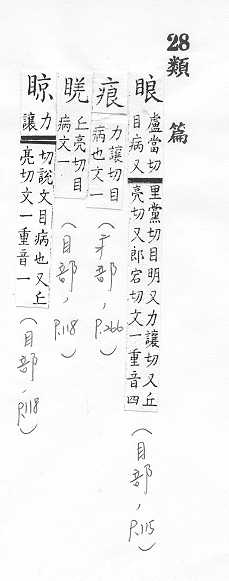 28類篇
䀶 盧當切目病又里黨切目明又力讓切又丘亮切又郎宕切文一重音四（目部，P.115）
㾗 力讓切目病也文一（疒部，P.266）
丘亮切目病文一（目部，P.118）
䁁 力讓切說文目病也又丘亮切文一重音一（目部，P.118）